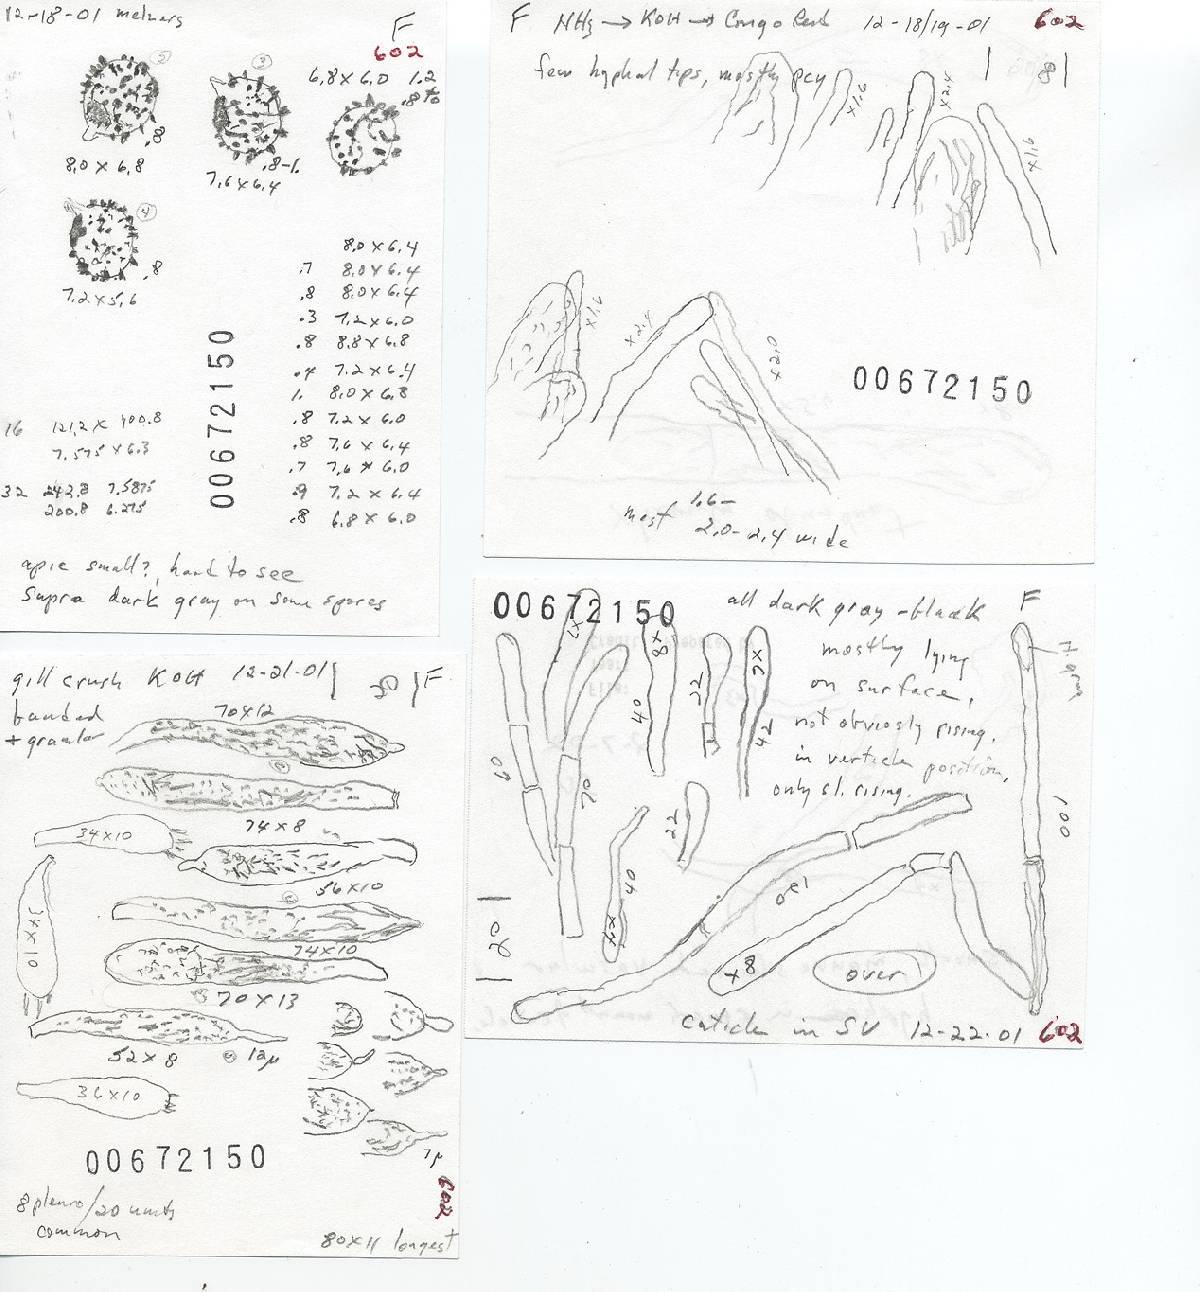 12-18-01 melzers F
602
6.8 x 6.0 1.2
.8 to
2
3
.8
8.0 x 6.8
.8-1.
7.6 x 6.4
4
.8
7.2 x 5.6
8.0 x 6.4
.7 8.0 x 6.4
.8 8.0 x 6.4
.3 7.2 x 6.0
.8 8.8 x 6.8
.4 7.2 x 6.4
1. 8.0 x 6.8
.8 7.2 x 6.0
.8 7.6 x 6.4
.7 7.6 x 6.0
.9 7.2 x 6.4
.8 6.8 x 6.0
00672150
16 121.2 x 100.8
7.575 x 6.3
32 242.8 7.5875
200.8 6.275
apic small?, hard to see
Supra dark gray on some spores
F NH3 → KOH → Congo Red 12-18/19-01 602
few hyphal tips, mostly pcy
8
x1.6
x2.4
x1.6
x1.6
x2.4
x2.0
00672150
most 1.6-
2.0-2.4 wide
gill crush KOH 12-21-01 20 F
banded
+ granular
70x12
74x8
34x10
56x10
34x10
74x10
70x13
52x8
12µ
36x10
1µ
00672150
8 pleuro/20 units
common
602
80x11 longest
00672150
all dark gray-black F
mostly lying
on surface,
not obviosly rising.
in verticle position,
only sl. rising.
x7
x8
40
22
x7
42
60
70
22
40
x4
130
x8
100
20
over
cuticle in SV 12-22-01 602